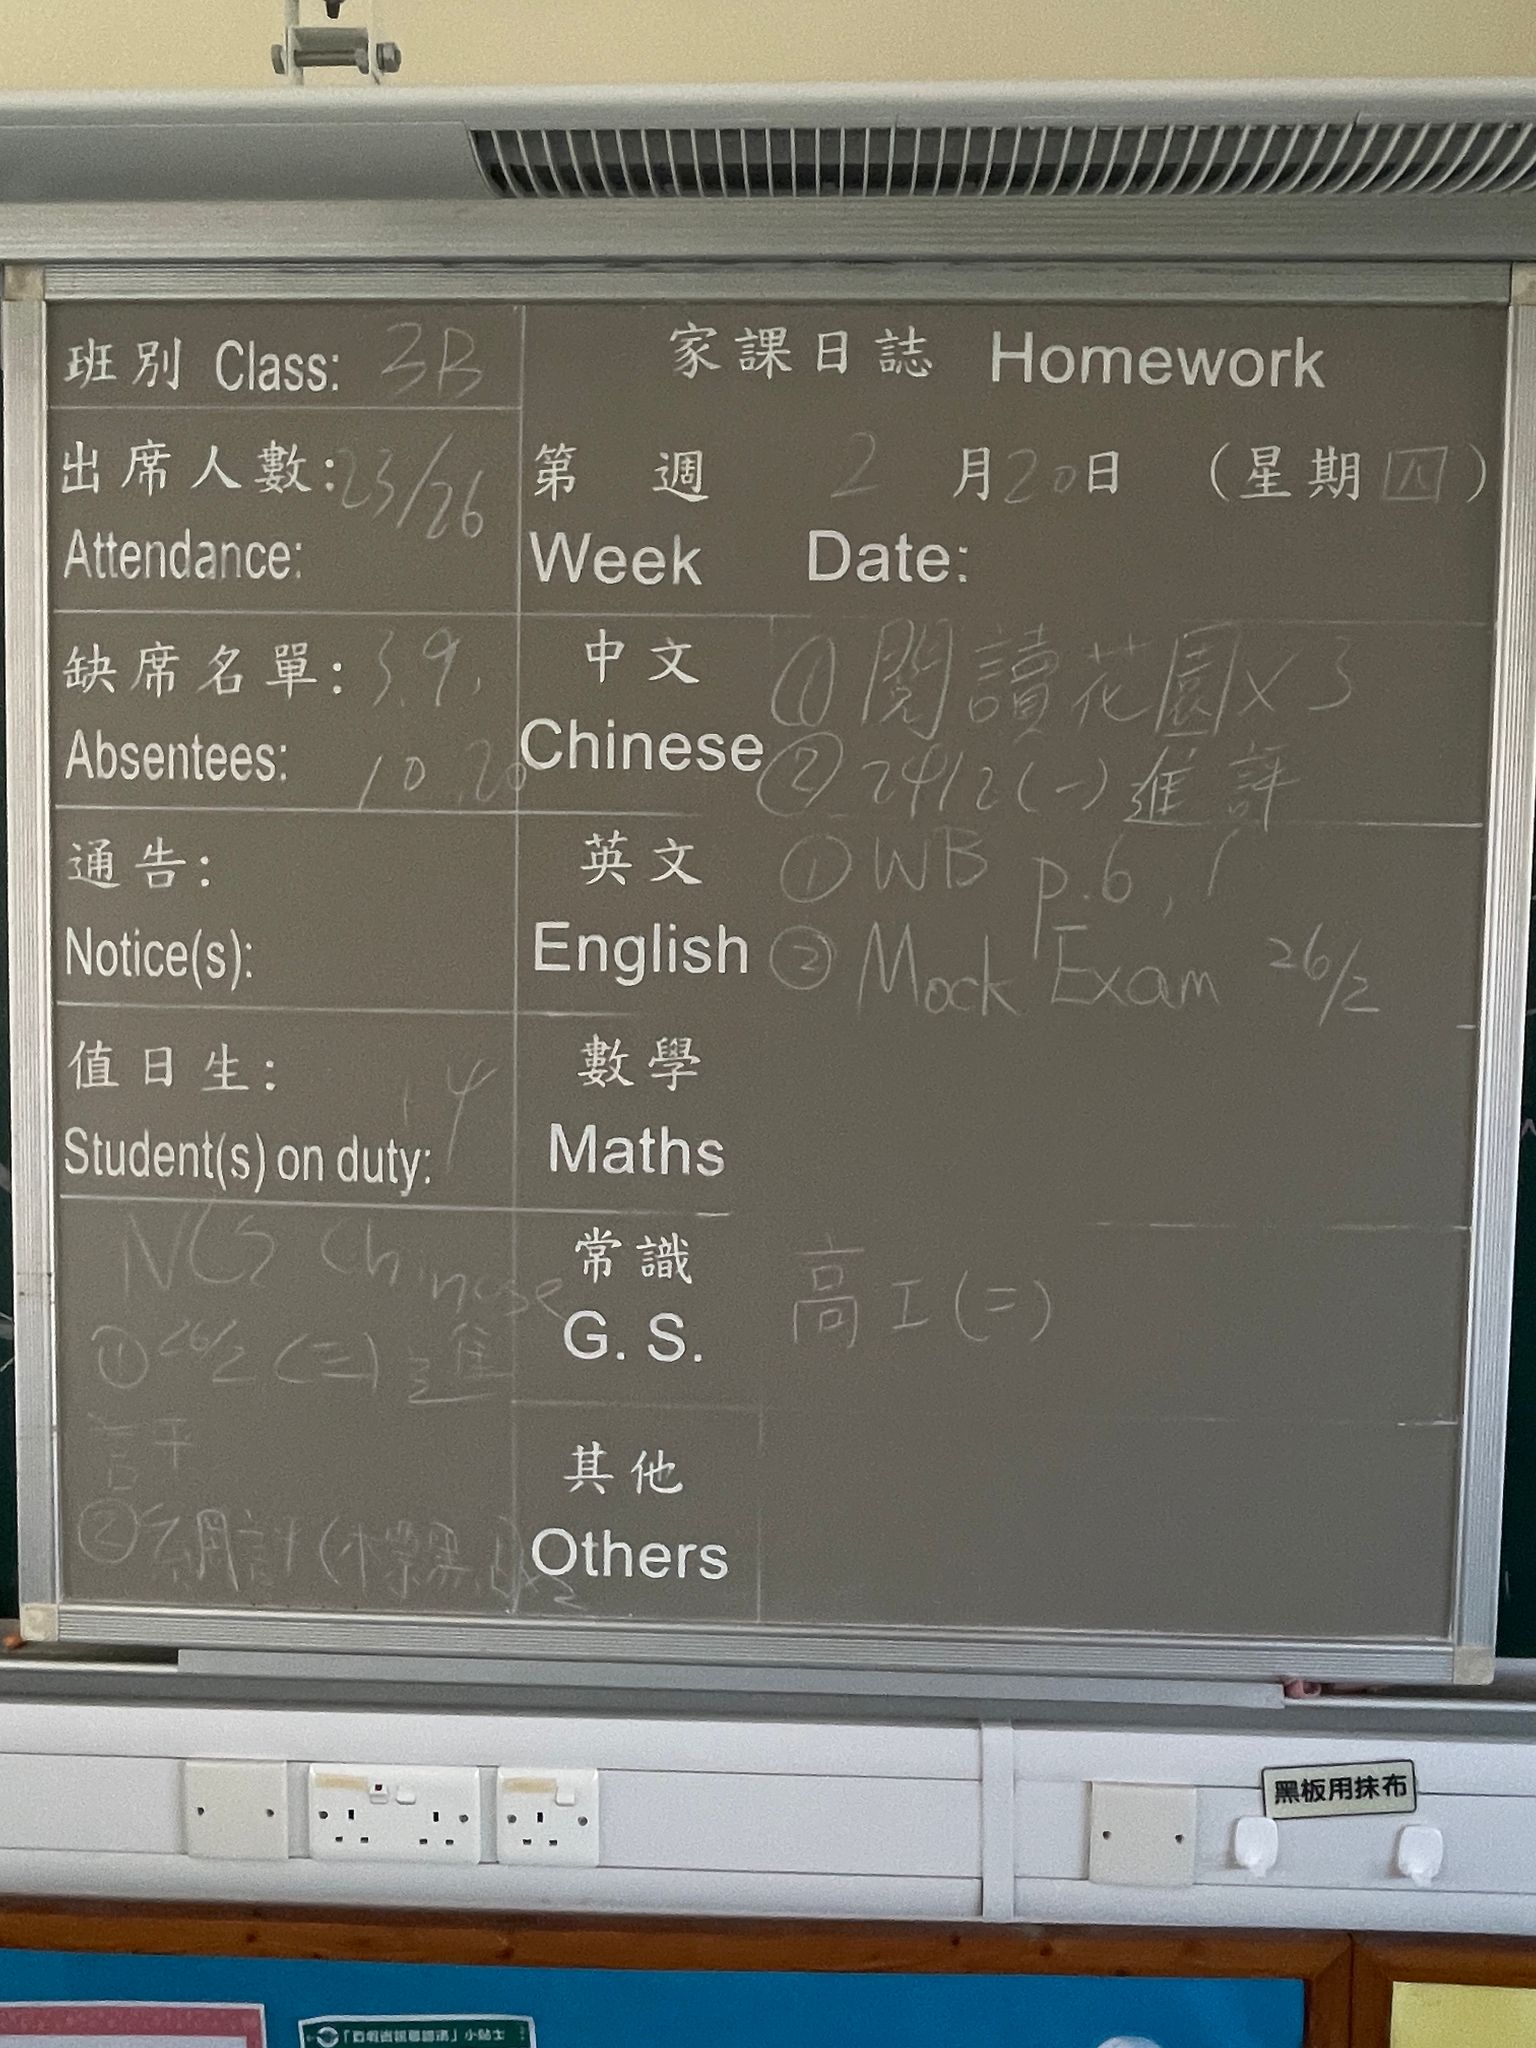 班別 Class: 3B
出席人數: 23/26
Attendance:
缺席名單: 3, 9,
Absentees: 10, 20
通告:
Notice(s):
值日生: 14
Student(s) on duty:
NCS Chinese
① 26/2 (三) 進
評
② 網評(標準)
家課日誌 Homework
第 週 2 月 20 日 (星期四)
Week Date:
中文
Chinese
① 閱讀花園 x 3
② 24/2 (一) 進評
英文
English
① WB p.6,
② Mock Exam 26/2
數學
Maths
常識
G. S.
高工(二)
其他
Others
黑板用抹布
小貼士